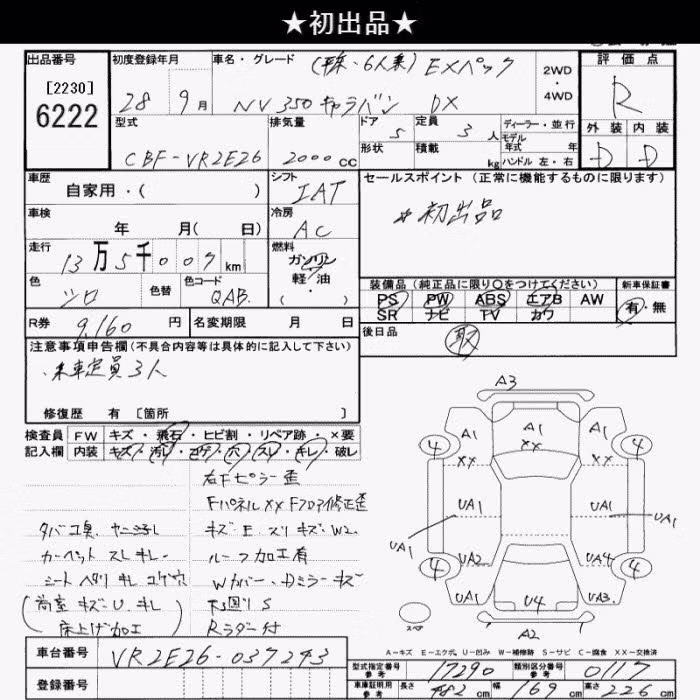 ★初出品★
出品番号 初度登録年月 車名・グレード 評価点
[2230]
6222
28 9 月 NV350キャラバン DX EXパック
2WD
4WD
R
型式 排気量 ドア 定員 ディーラー・並行
CBF-VR2E26 2000 cc 5 3 人 モデル年式 年
形状 積載 kg ハンドル 左・右
外装 内装
D D
車歴 シフト セールスポイント (正常に機能するものに限ります)
自家用・( ) IAT
☆初出品
車検 冷房
年 月( 日) AC
走行 燃料
13万5千007km ガソリン
軽・油
色 色替 色コード
シロ QAB
装備品 (純正品に限り○をつけてください) 新車保証書
PS PW ABS エアB AW
SR ナビ TV カワ
有・無
R券 9,160 円 名変期限 月 日
後日品 取
注意事項申告欄(不具合内容等は具体的に記入して下さい)
・乗車定員3人
修復歴 有 [箇所 ]
検査員 FW キズ・飛石・ヒビ割・リペア跡・×要
記入欄 内装 キズ・汚レ・コゲ・穴・スレ・キレ・破レ
右Fピラー歪
Fパネル××Fフロア修正歪
タバコ臭、ヤニ汚レ キズ・E・スリキズ・W2
カーペット スレ キレ ルーフ加工有
シート ヘタリ キレ コゲ穴 Wカバー・Dミラーキズ
(荷室 キズ・U・キレ 下回りS
床上げ加工) Rラダー付
A3
A1 A1 A1
×× ××
4 4
UA1 UA1
UA1 UA1
UA2 UA4
4 4
U4 UA3
スペア A2
A-キズ E-エクボ U-凹み W-補修跡 S-サビ C-腐食 ××-交換済
車台番号 VR2E26-037243
登録番号
型式指定番号 参考 17290 類別区分番号 参考 0117
車庫証明用 参考 長さ 482 cm 幅 169 cm 高さ 226 cm